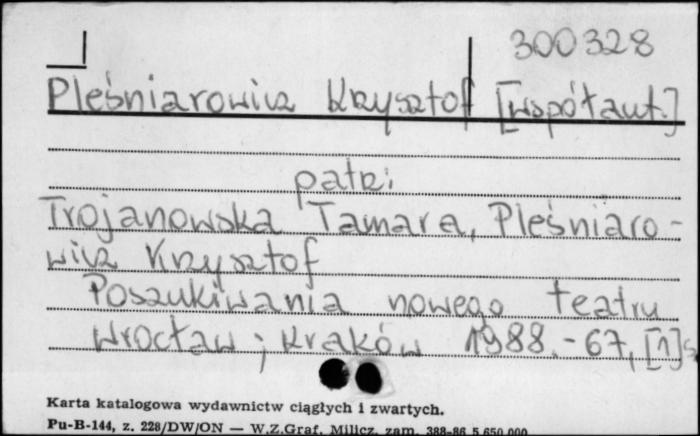 300328
Pleśniarowicz Krzysztof [współaut.]
patrz:
Trojanowska Tamara, Pleśniaro-
wicz Krzysztof
Poszukiwania nowego teatru
Wrocław ; Kraków 1988. - 67, [1] s.
Karta katalogowa wydawnictw ciągłych i zwartych.
Pu-B-144, z. 228/DW/ON — W.Z.Graf. Milicz, zam. 388-86 5.650.000